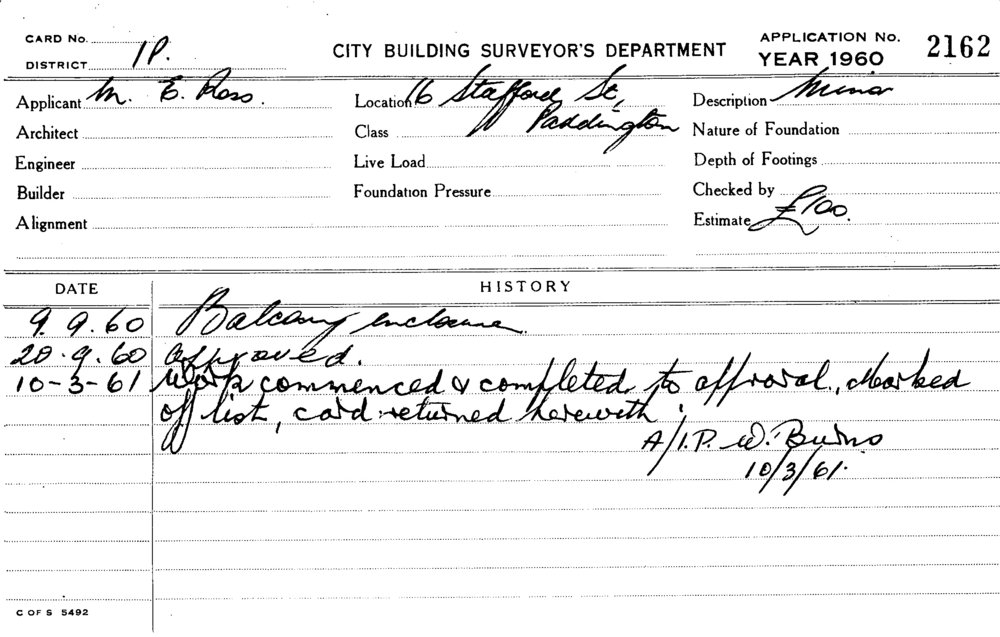 CARD No.
DISTRICT 1P.
CITY BUILDING SURVEYOR'S DEPARTMENT
APPLICATION No.
YEAR 1960
2162
Applicant M. E. Ross.
Location 16 Stafford St,
Paddington
Description Minor
Architect
Class
Nature of Foundation
Engineer
Live Load
Depth of Footings
Builder
Foundation Pressure
Checked by
Alignment
Estimate £100.
DATE
HISTORY
9.9.60 Balcony enclosure.
20.9.60 Approved.
10-3-61 Work commenced & completed to approval, Marked
off list, card returned herewith.
A/I.P. W. Burns
10/3/61.
C OF S 5492